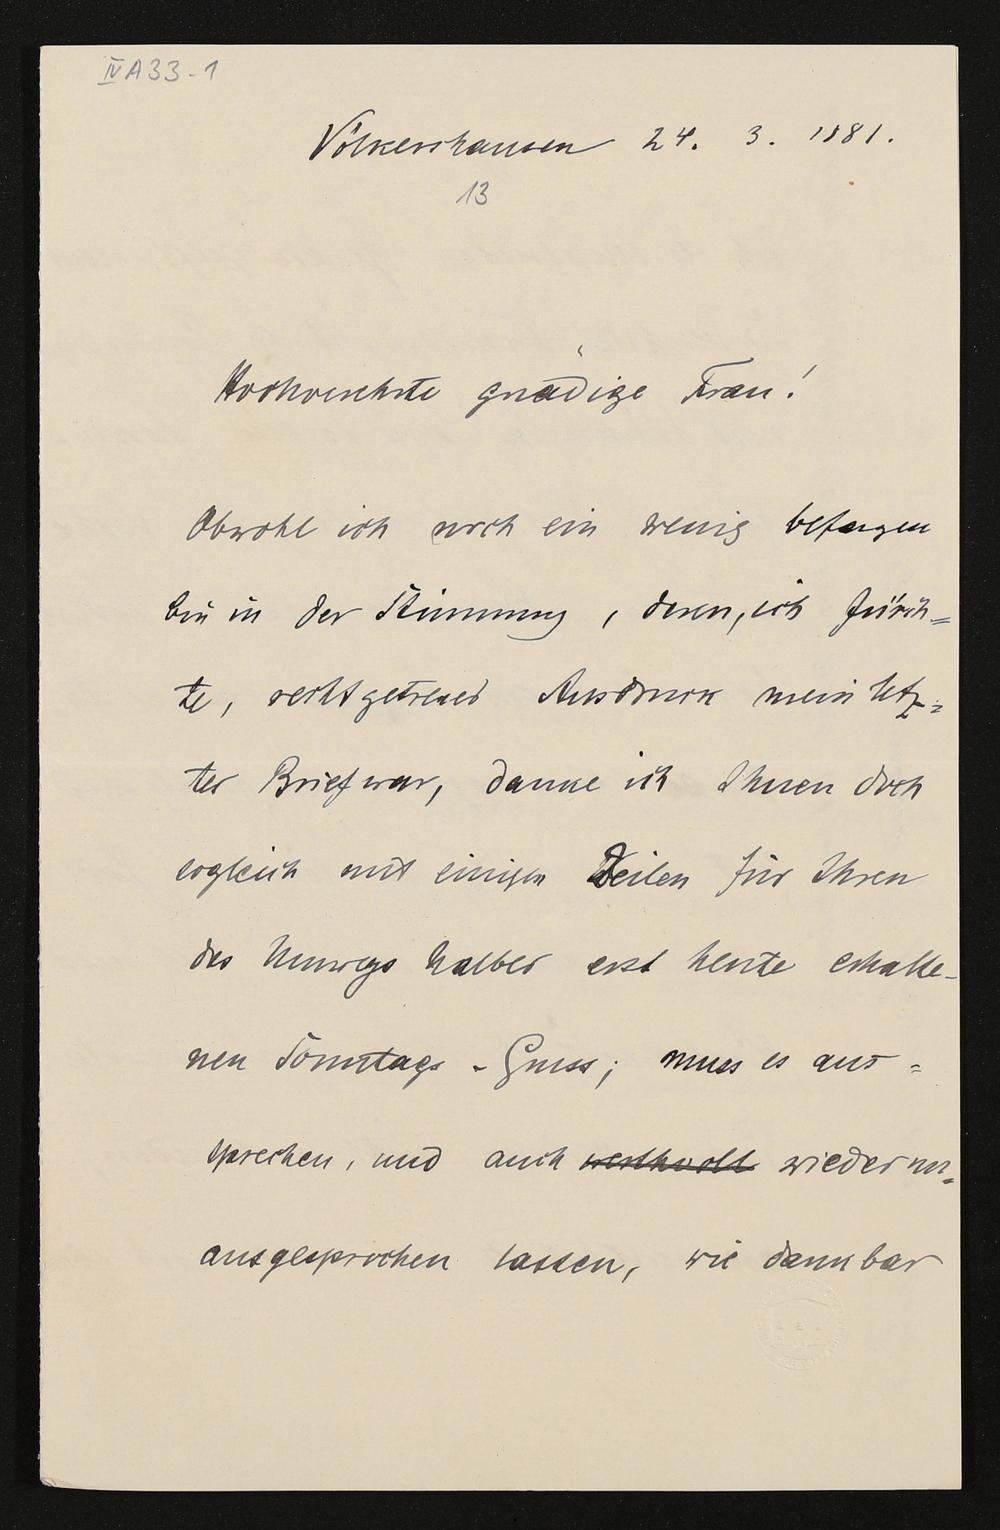 IV A 33-1
Völkershausen 24. 3. 1881.
13
Hochverehrte gnädige Frau!
Obwohl ich noch ein wenig befangen
bin in der Stimmung, deren, ich fürch=
te, recht getreues Ausdruck mein letz=
ter Brief war, danke ich Ihnen doch
sogleich mit einigen Zeilen für Ihren
des Umwegs halber erst heute erhalte-
nen Sonntags-Gruss; muss es aus=
sprechen, und auch werthvoll wieder un=
ausgesprochen lassen, wie dankbar